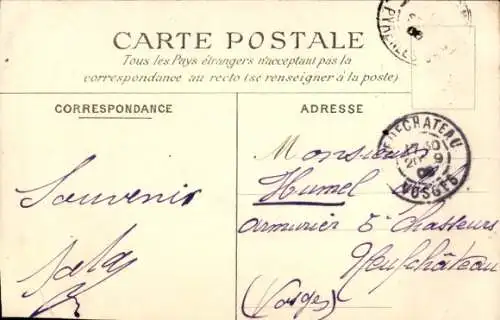 CARTE POSTALE
Tous les Pays étrangers n'acceptant pas la
correspondance au recto (se renseigner à la poste)
CORRESPONDANCE
ADRESSE
Souvenir
Monsieur
Humel
armurier 5e Chasseurs
Neufchâteau
(Vosges)
NEUFCHATEAU
20 9
VOSGES